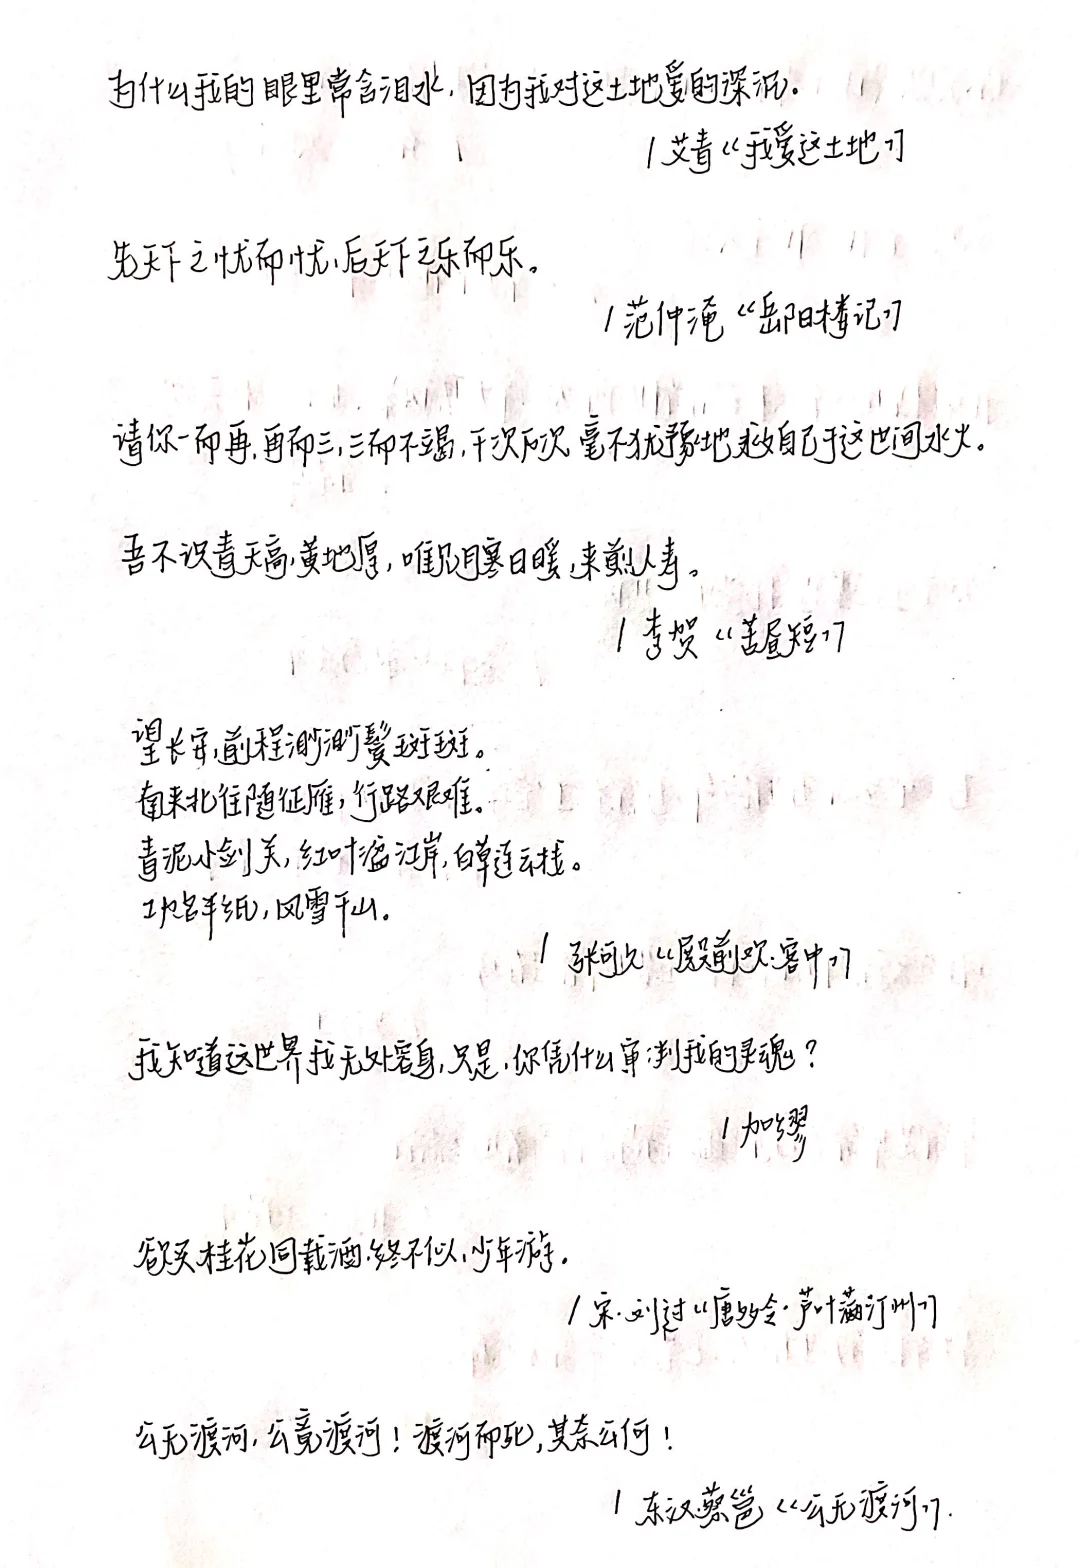 为什么我的眼里常含泪水，因为我对这土地爱的深沉.
/ 艾青《我爱这土地》
先天下之忧而忧，后天下之乐而乐。
/ 范仲淹《岳阳楼记》
请你一而再，再而三，三而不竭，千次万次，毫不犹豫地救自己于这世间水火。
吾不识青天高，黄地厚，唯见月寒日暖，来煎人寿。
/ 李贺《苦昼短》
望长安，前程渺渺鬓斑斑。
南来北往随征雁，行路艰难。
青泥小剑关，红叶湓江岸，白草连云栈。
功名半纸，风雪千山.
/ 张可久《殿前欢·客中》
我知道这世界我无处容身，只是，你凭什么审判我的灵魂？
/ 加缪
欲买桂花同载酒，终不似，少年游.
/ 宋·刘过《唐多令·芦叶满汀州》
公无渡河，公竟渡河！渡河而死，其奈公何！
/ 东汉·蔡邕《公无渡河》.